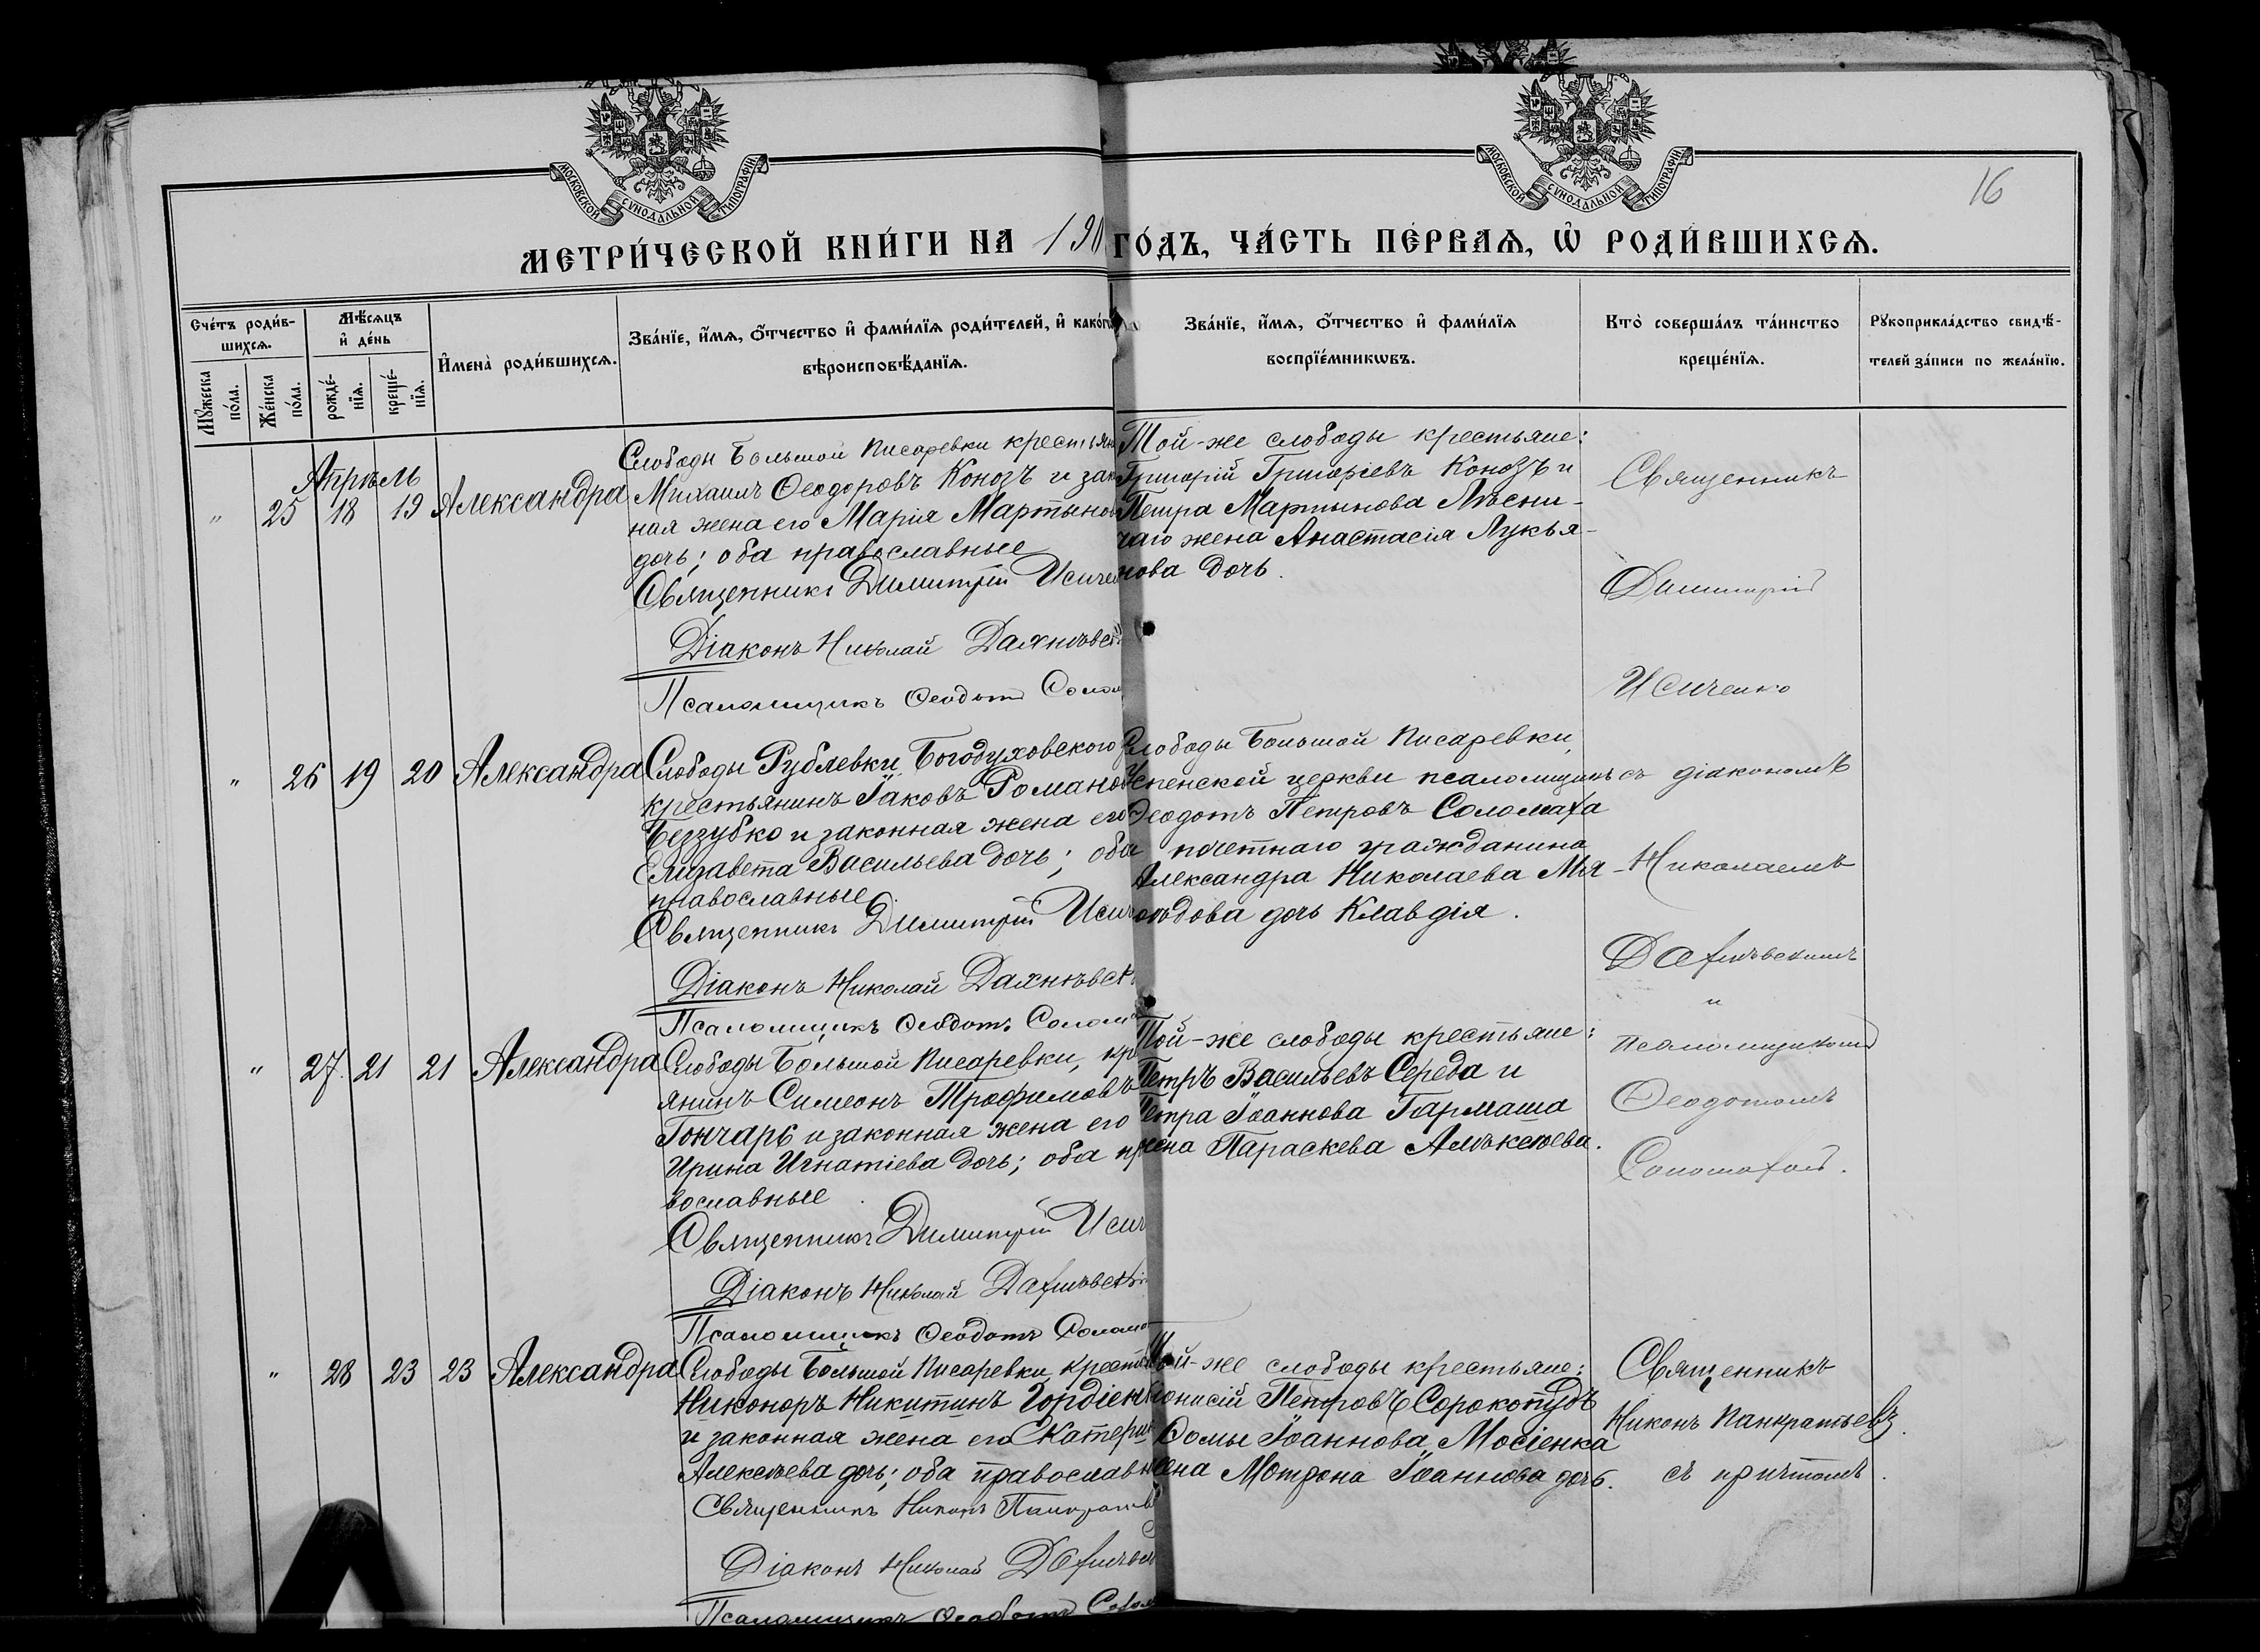 МОСКОВСКОЙ СѴНОДАЛЬНОЙ ТИПОГРАФІИ
МОСКОВСКОЙ СѴНОДАЛЬНОЙ ТИПОГРАФІИ
16
МЕТРИ́ЧЕСКОЙ КНИ́ГИ НА 190
ГО́ДЪ, ЧА́СТЬ ПЕ́РВАѦ, Ѡ҆ РОДИ́ВШИХСѦ.
Сче́тъ роди́в-
шихсѧ.
Мꙋ́жеска по́ла.
Же́нска по́ла.
Мѣ́сѧцъ и҆ де́нь
рожде́-
нїѧ.
креще́-
нїѧ.
И҆мена̀ роди́вшихсѧ.
Зва́нїе, и҆́мѧ, ѻ҆́тчество и҆ фами́лїѧ роди́телей, и҆ како́гѡ
вѣроисповѣ́данїѧ.
Зва́нїе, и҆́мѧ, ѻ҆́тчество и҆ фами́лїѧ
воспрїе́мникѡвъ.
Кто̀ соверша́лъ та́инство
креще́нїѧ.
Рꙋкоприкла́дство свидѣ́-
телей за́писи по жела́нїю.
Апрѣль
" 25 18 19 Александра
Слободы Большой Писаревки крестьян
Михаилъ Ѳеодоровъ Конозъ и зак
ная жена его Марія Мартынов
дочь; оба православные
Священникъ Димитрій Исиче
Діаконъ Николай Дахнѣвск
Псаломщикъ Ѳеодотъ Солом
Той-же слободы крестьяне:
Григорій Григоріевъ Конозъ и
Петра Мартынова Лѣсни-
чаго жена Анастасія Лукья-
нова дочь.
Священникъ
Димитрій
Исиченко
" 26 19 20 Александра
Слободы Рублевки, Богодуховского
крестьянинъ Іаковъ Романов
Беззубко и законная жена его
Елизавета Васильева дочь; оба
православные.
Священникъ Димитрій Исич
Діаконъ Николай Дахнѣвск
Псаломщикъ Ѳеодотъ Солом
Слободы Большой Писаревки,
Успенской церкви псаломщикъ
Ѳеодотъ Петровъ Соломаха
почетнаго гражданина
Александра Николаева Мя-
дова дочь Клавдія.
съ діакономъ
Николаемъ
Дахнѣвскимъ
и
псаломщикомъ
Ѳеодотомъ
Соломахой.
" 27. 21 21 Александра
Слободы Большой Писаревки, кр
янинъ Симеонъ Трофимовъ
Гончарь и законная жена его
Ирина Игнатіева дочь; оба пр
вославные
Священникъ Димитрій Исич
Діаконъ Николай Дахнѣвскі
Псаломщикъ Ѳеодотъ Солома
Той-же слободы крестьяне:
Петръ Васильевъ Середа и
Петра Іоаннова Гармаша
жена Параскева Алексѣева.
" 28 23 23 Александра
Слободы Большой Писаревки, кресть
Никоноръ Никитинъ Гордіен
и законная жена его Катери
Алексѣева дочь; оба православн
Священникъ Никонъ Панкратьев
Діаконъ Николай Дахнѣвск
Псаломщикъ Ѳеодотъ Солом
Той-же слободы крестьяне:
Діонисій Петровъ Сорокопудъ
Ѳомы Іоаннова Мосіенка
жена Мотрона Іоаннова дочь.
Священникъ
Никонъ Панкратьевъ
съ причтомъ.